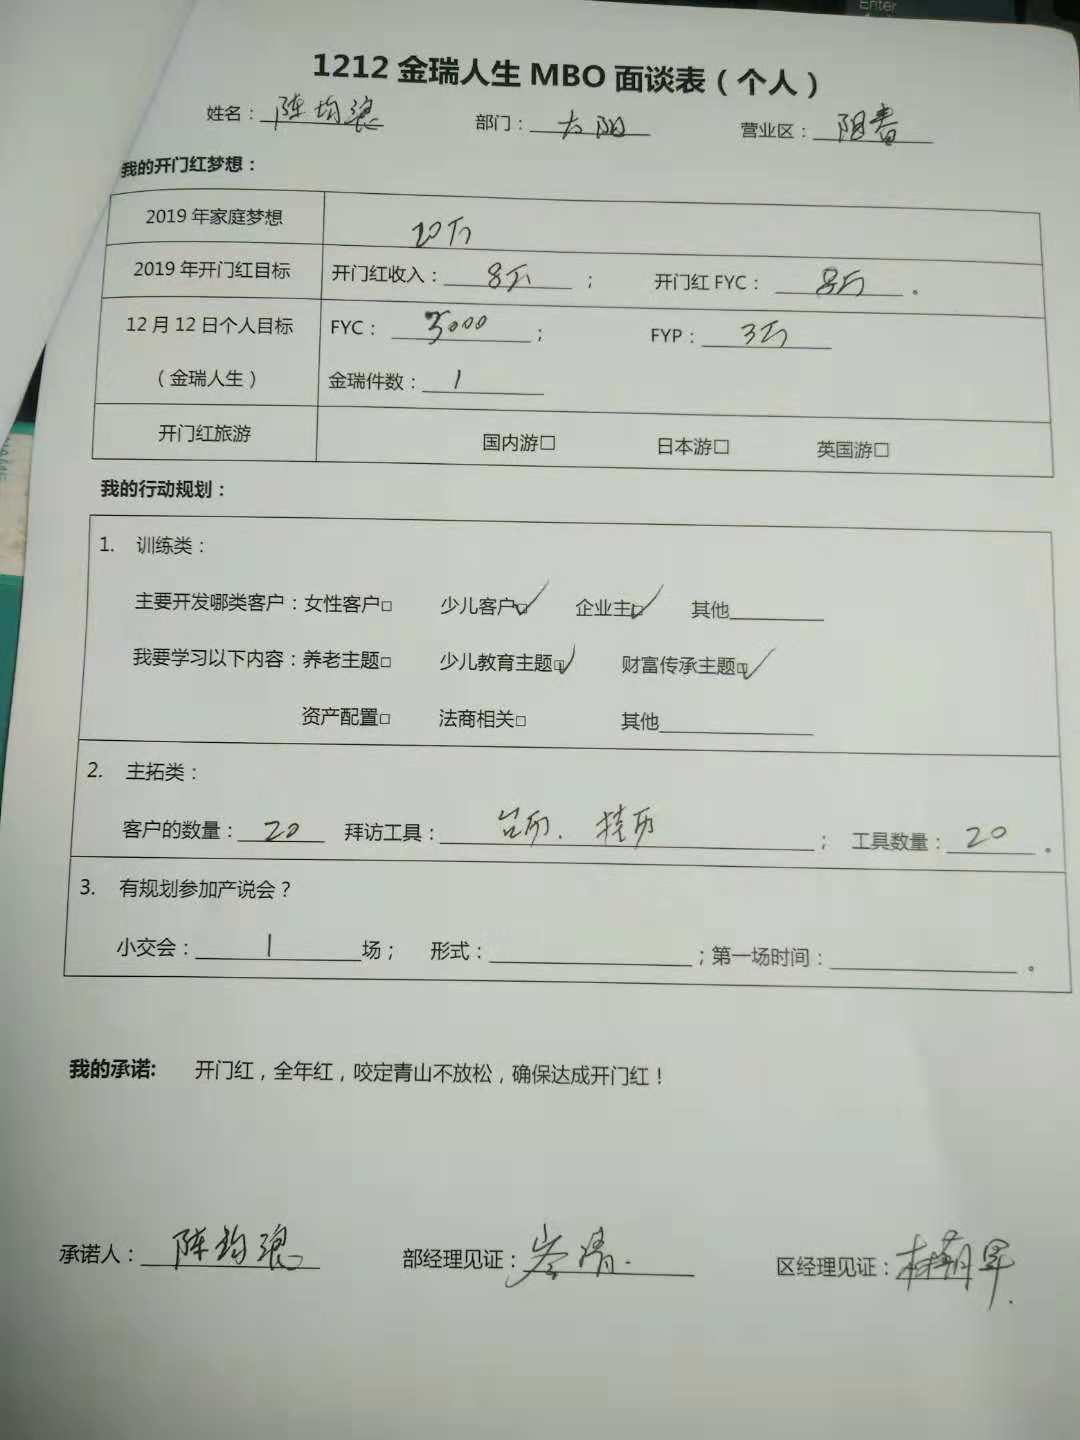 Enter
1212金瑞人生MBO面谈表（个人）
姓名：陈均浪 部门：太阳 营业区：阳春
我的开门红梦想：
2019年家庭梦想 20万
2019年开门红目标 开门红收入：8万； 开门红FYC：8万。
12月12日个人目标 FYC：3000； FYP：3万
（金瑞人生） 金瑞件数：1
开门红旅游 国内游□ 日本游□ 英国游□
我的行动规划：
1. 训练类：
主要开发哪类客户：女性客户□ 少儿客户☑ 企业主☑ 其他
我要学习以下内容：养老主题□ 少儿教育主题☑ 财富传承主题☑
资产配置□ 法商相关□ 其他
2. 主拓类：
客户的数量：20 拜访工具：台历、挂历； 工具数量：20。
3. 有规划参加产说会？
小交会：1场； 形式：；第一场时间：。
我的承诺: 开门红，全年红，咬定青山不放松，确保达成开门红！
承诺人：陈均浪 部经理见证：岑清. 区经理见证：